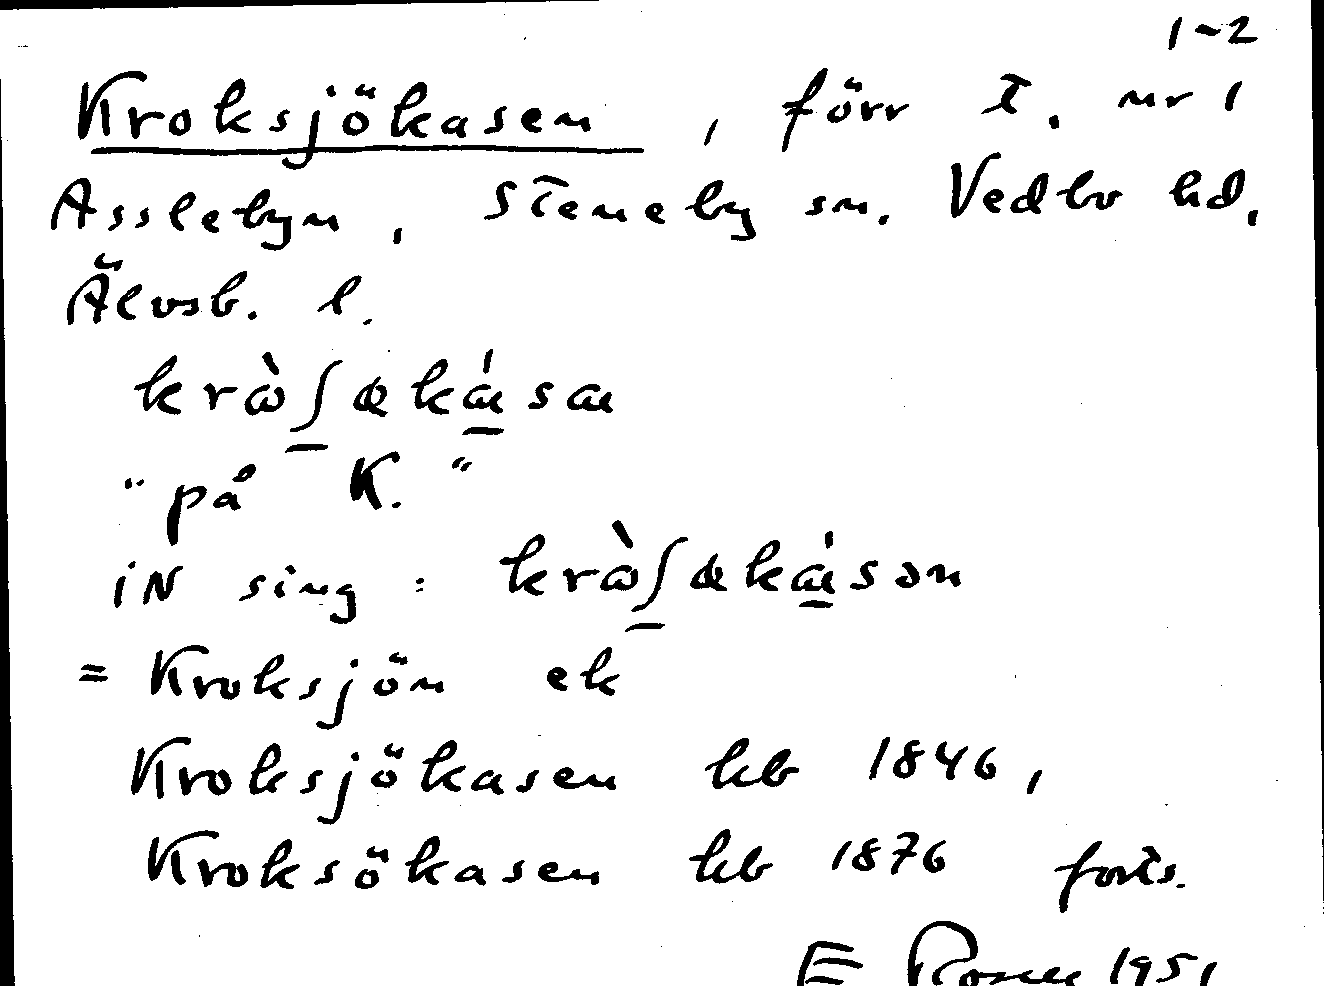 1-2
Kroksjökasen, förr t. nr 1
Asslebyn, Steneby sn. Vedbo hd,
Älvsb. l.
"på K."
iN sing:
= Kroksjön ek
Kroksjökasen hb 1846,
Kroksökasen hb 1876 forts.
E 1951